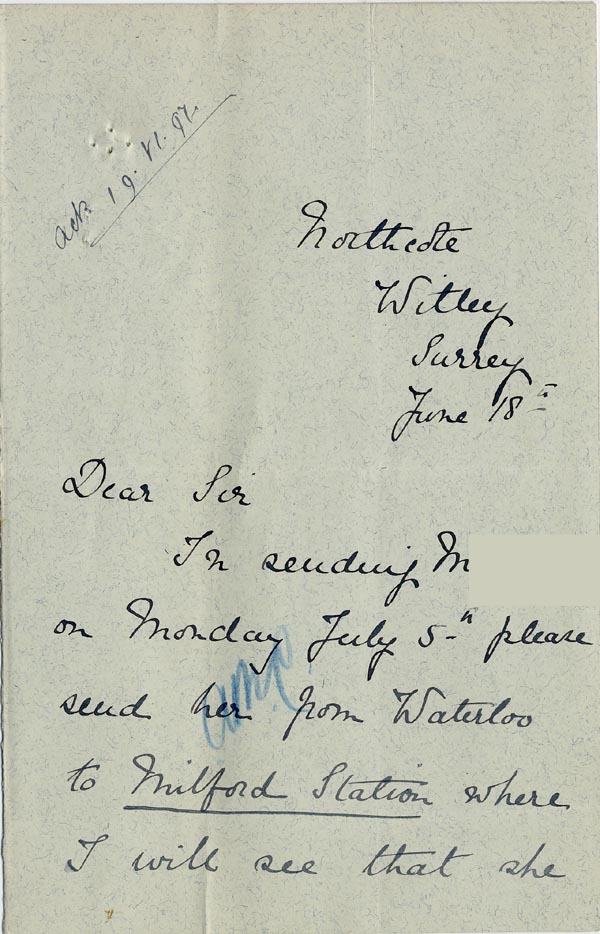 ack 19.VI.97.
Northcote
Witley
Surrey
June 18th
Dear Sir
In sending M
on Monday July 5th please
send her from Waterloo
to Milford Station where
I will see that she